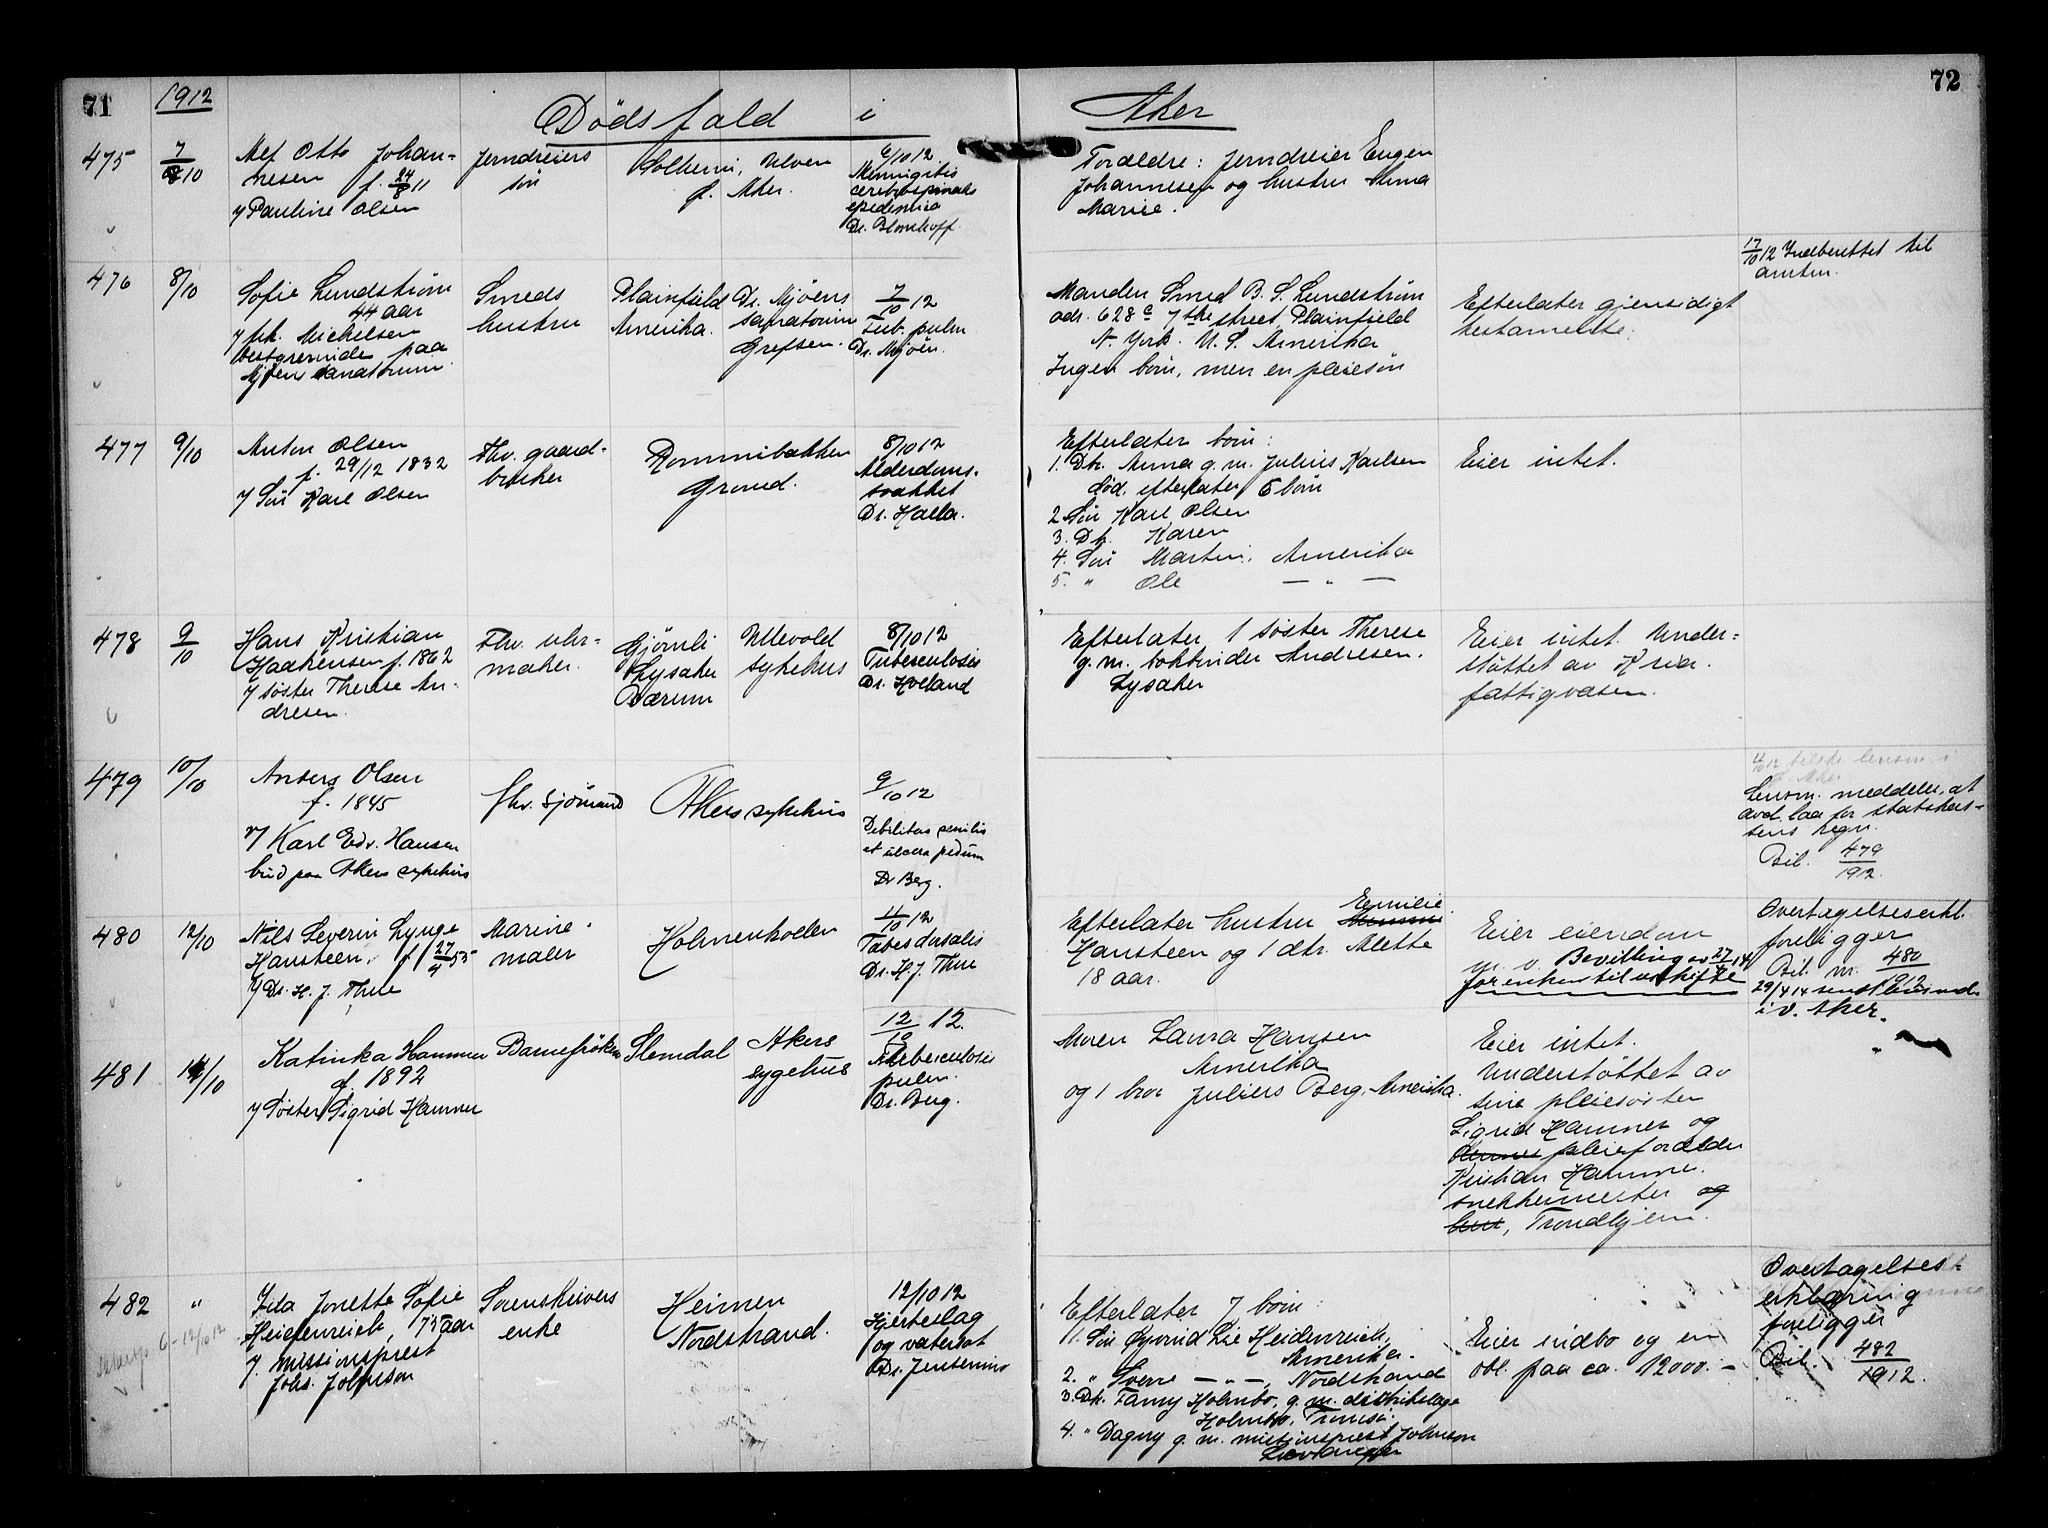 71
1912
Dödsfald i
Aker
72
475
7/10
Alf Otto Johan-
nesen f. 24/8 11
v/ Pauline Olsen
Jerndreiers
sön
Solheim, Ulven
f. Aker.
6/10 12
Meningitis
cerebrospinalis
epidemica
Dr. Blomhoff
Forældre: Jerndreier Eugen
Johannesen og hustru Anna
Marie.
476
8/10
Sofie Lundström
44 aar
v/ frk. Mickelsen
bestyrerinde paa
Mjøen sanatorium
Smeds
hustru
Plainfield
Amerika.
Dr. Mjöens
sanatorium
Grefsen.
7/10 12
Tub. pulm
Dr. Mjöen.
Manden Smed B. S. Lundström
adr. 628 7the street, Plainfield
N. York. U. S. Amerika
Ingen börn, men en pleiesön
Efterlater gjensidigt
testamente.
17/10 12 Indberettet til
amtm.
477
9/10
Anton Olsen
f. 29/12 1832
v/ Sön Karl Olsen
Fhv. gaard-
bruker
Rommibakken
Grorud.
8/10 12
Alderdoms-
svakket
Dr. Halla.
Efterlater börn:
1. Dtr. Anna g. m. Julius Karlsen
död, efterlater 5 börn
2 Sön Karl Olsen
3. Dtr. Karen
4. Sön Martin, Amerika
5. " Ole — " —
Eier intet.
478
9/10
Hans Kristian
Haakensen f. 1862
v/ söster Therese An-
dresen.
Fhv. uhr-
maker.
Gjönli
Lysaker
Bærum
Ullevold
sykehus
8/10 12
Tuberculosis
Dr. Hovland
Efterlater 1 söster Therese
g. m. bokbinder Andresen.
Lysaker
Eier intet. Under-
stöttet av Kria.
fattigvæsen.
479
10/10
Anders Olsen
f. 1845
v/ Karl Edv. Hansen
bud paa Akers sykehus
fhv. sjömand
Akers sykehus
9/10 12
Debilitas senilis
et ulcera pedum
Dr Berg.
Lensm. meddeler, at
avd. laa for statskas-
sens regn.
Bil. 479/1912.
480
12/10
Nils Severin Lynge
Hansteen, f 27/4 55
v/ Dr. H. J. Thue
Marine-
maler
Holmenkollen
11/10 12
Tabes dorsalis
Dr. H. J. Thue
Efterlater hustru Emilie
Hansteen og 1 dtr. Alette
18 aar.
Eier eiendom
Bevilling av 27/4 14
for enken til uskifte
Overtagelseserkl.
foreligger
Bil. nr. 480/1912
29/4 14 sendt
i v. Aker.
481
14/10
Katinka Hammer
f. 1892
v/ Söster Sigrid Hammer
Barnefröken
Slemdal
Akers
sygehus
12/10 12.
Tuberculosis
pulm.
Dr. Berg.
Moren Laura Hansen
Amerika
og 1 bror Julius Berg, Amerika.
Eier intet.
Understöttet av
sine pleiesöster
Sigrid Hammer og
pleieforælder
Kristian Hammer.
snekkermester og
hust, Trondhjem.
482
"
Ida Jonette Sofie
Heidenreich, 75 aar
v. missionsprest
Johs. Johnson
Sorenskrivers
enke
Heimen
Nordstrand.
12/10 12
Hjerteslag
og vatersot
Dr. Jensenius
Efterlater 7 börn:
1. Sön Øyvind Lie Heidenreich,
Amerika.
2. " Sverre — " —, Nordstrand
3. Dtr. Fanny Holmbo, g. m. distriktslæge
Holmbo, Tromsö.
4. " Dagny g. m. missionsprest Johnson
Levanger
Eier indbo og en
obl. paa ca. 12000. —
Overtagelses-
erklæring
foreligger
Bil. 482/1912.